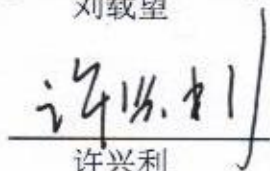 刘载望
许兴利
许兴利